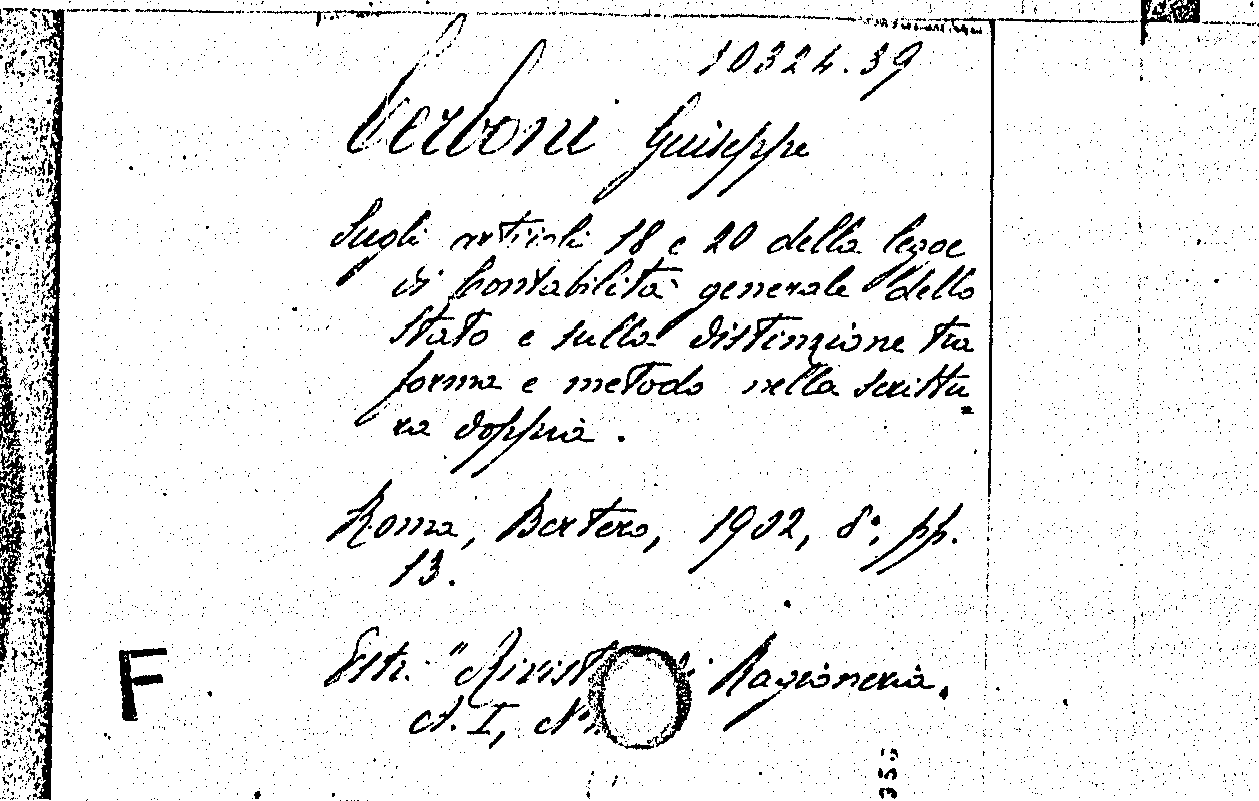 10324.39
Cerboni Giuseppe
Sugli articoli 18 e 20 della legge
di Contabilità generale dello
Stato e sulla distinzione tra
forma e metodo nella scrittu
ra doppia.
Roma, Bertero, 1902, 8°, pp.
13.
Estr. "Rivist di Ragioneria.
A. I, N°
F
355